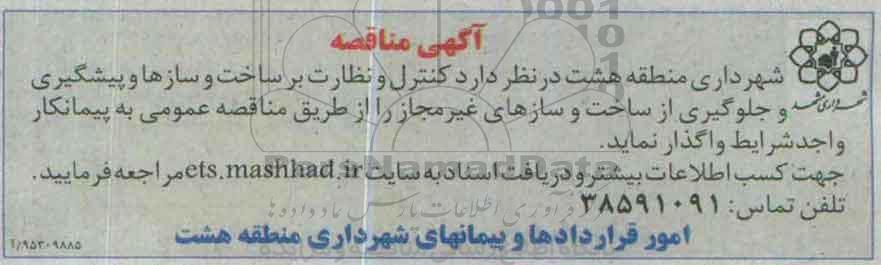 آگهی مناقصه
شهرداری منطقه هشت در نظر دارد کنترل و نظارت بر ساخت و سازها و پیشگیری
و جلوگیری از ساخت و سازهای غیرمجاز را از طریق مناقصه عمومی به پیمانکار
واجد شرایط واگذار نماید.
جهت کسب اطلاعات بیشتر و دریافت اسناد به سایت ets.mashhad.ir مراجعه فرمایید.
تلفن تماس: ۳۸۵۹۱۰۹۱
امور قراردادها و پیمانهای شهرداری منطقه هشت
شهرداری مشهد
۹۵۳۰۹۸۸۵/آ
ParsNamadData